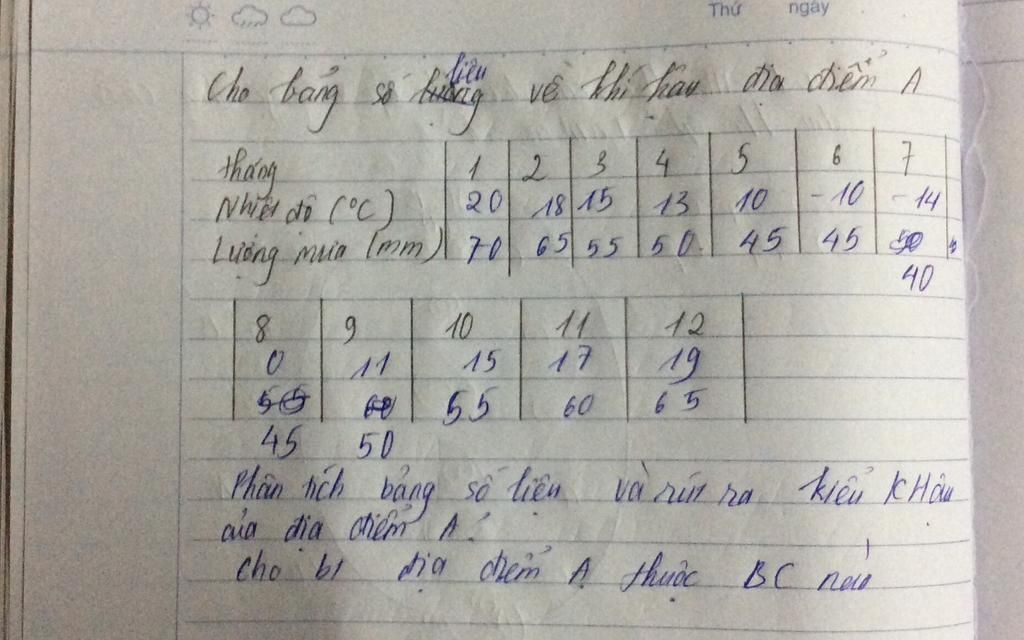 Thứ ngày
Cho bảng số liệu về khí hậu địa điểm A
tháng 1 2 3 4 5 6 7
Nhiệt độ (°C) 20 18 15 13 10 -10 -14
Lượng mưa (mm) 70 65 55 50 45 45
40
8 9 10 11 12
0 11 15 17 19
55 60 65
45 50
Phân tích bảng số liệu và rút ra kiểu KHậu
của địa điểm A.
cho bt địa điểm A thuộc BC nào